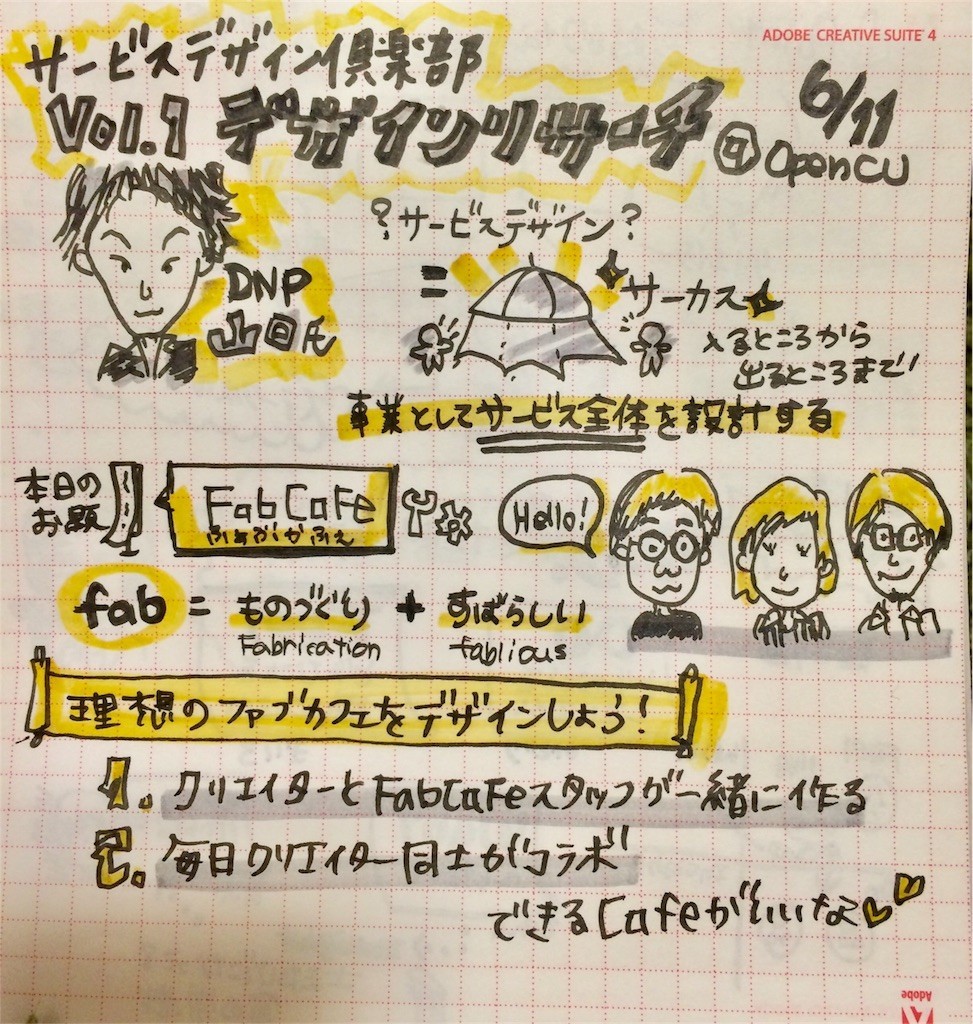 ADOBE® CREATIVE SUITE® 4
サービスデザイン倶楽部
Vol.1 デザインリサーチ
6/11
@OpenCU
DNP
山口氏
?サービスデザイン?
= サーカス
入るところから
出るところまで
事業としてサービス全体を設計する
本日の
お題
FabCafe
ふぁぶかふぇ
Hello!
fab = ものづくり + すばらしい
Fabrication fablious
理想のファブカフェをデザインしよう!
1. クリエイターとFabCafeスタッフが一緒に作る
2. 毎日クリエイター同士がコラボ
できるCafeがいいな
Adobe